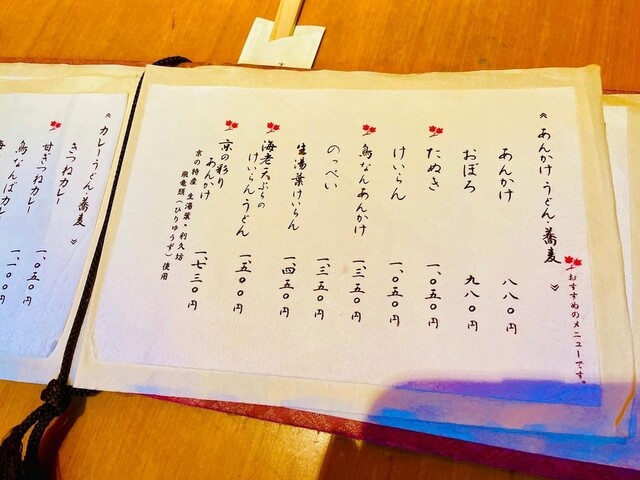 ≪ あんかけうどん・蕎麦 ≫
おすすめのメニューです。
あんかけ 八八〇円
おぼろ 九八〇円
たぬき 一、〇五〇円
けいらん 一、〇五〇円
鳥なんあんかけ 一、三五〇円
のっぺい 一、三五〇円
生湯葉けいらん 一、四五〇円
海老天ぷらの
けいらんうどん 一、五〇〇円
京の彩り
あんかけ 一、七三〇円
京の特産 生湯葉・利久坊
飛竜頭(ひりゅうず)使用
≪ カレーうどん・蕎麦 ≫
きつねカレー
甘ぎつねカレー 一、〇五〇円
鳥なんばカレー 一、一〇〇円